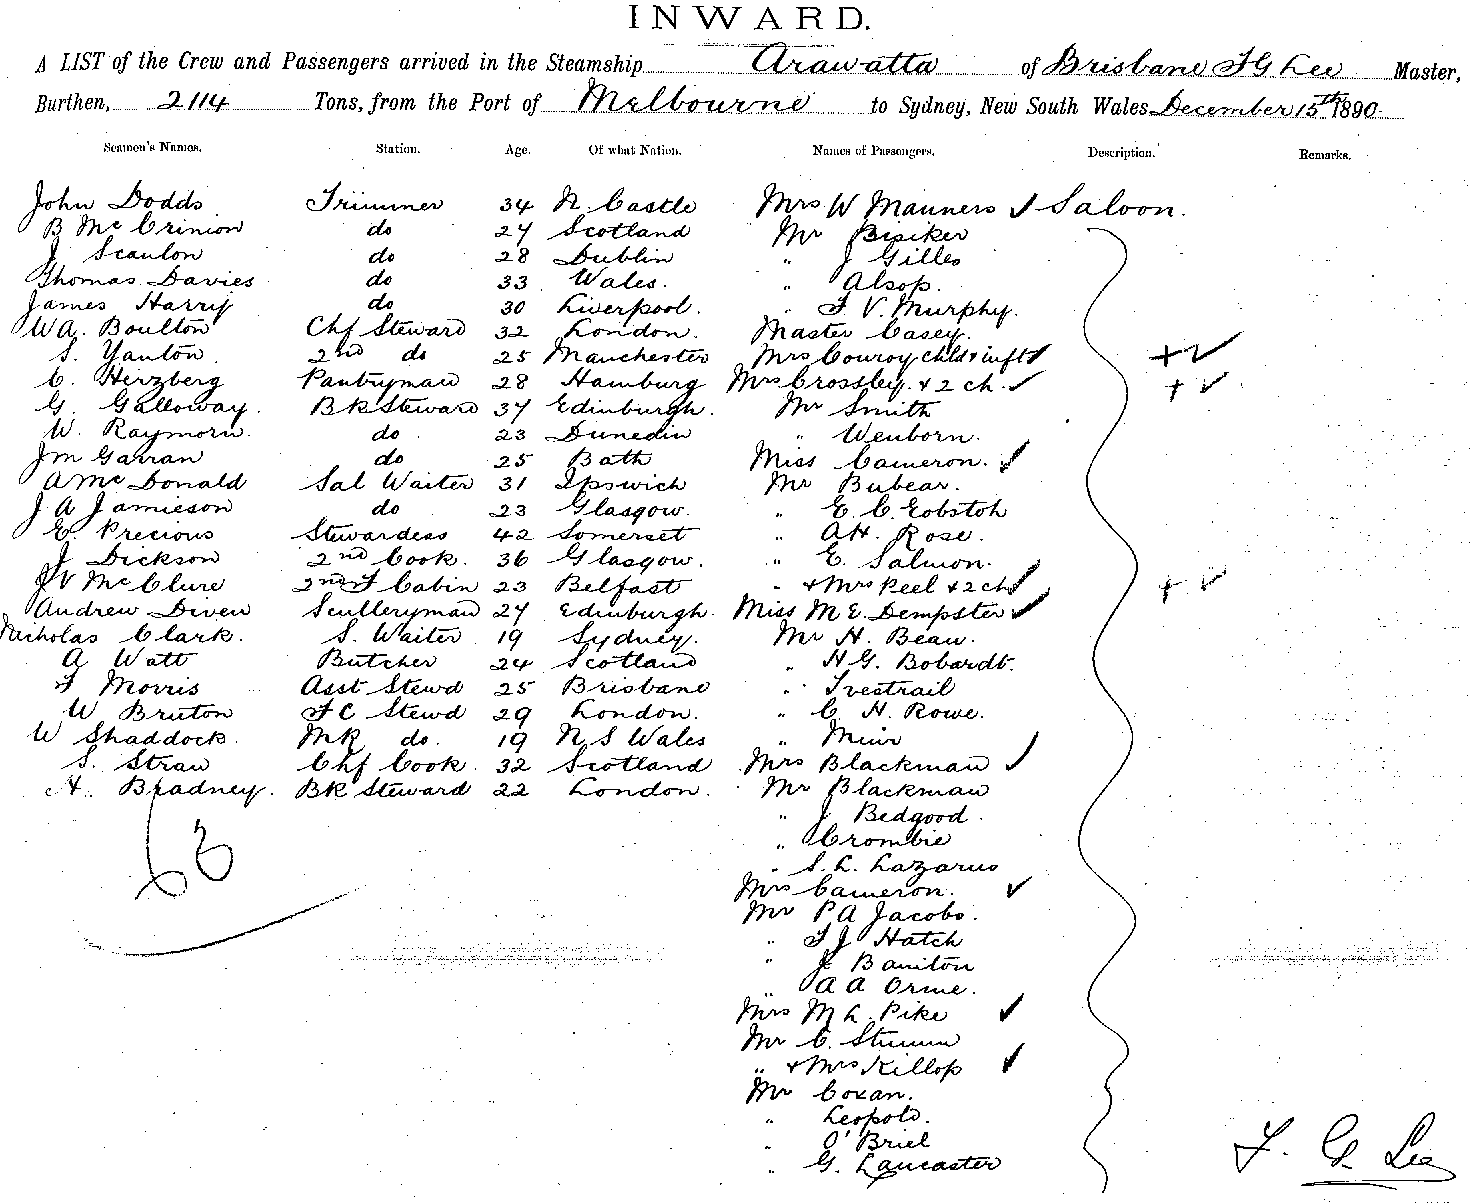 INWARD.
A LIST of the Crew and Passengers arrived in the Steamship Arawatta of Brisbane F G Lee Master,
Burthen, 2114 Tons, from the Port of Melbourne to Sydney, New South Wales December 15th 1890
Seamen's Names. Station. Age. Of what Nation. Names of Passengers. Description. Remarks.
John Dodds Trimmer 34 N. Castle Mrs W Manners ✓ Saloon.
B McCrinion do 24 Scotland Mr Bisiker
J Scanlon do 28 Dublin " J Gilles
Thomas Davies do 33 Wales. " Alsop.
James Harry do 30 Liverpool. " F. V. Murphy.
W A. Boulton Chf Steward 32 London. Master Casey.
S. Yanton. 2nd do 25 Manchester Mrs Conroy chld & inft ✓ + ✓
C. Herzberg Pantryman 28 Hamburg Mrs Crossley. + 2 ch. ✓ + ✓
G. Galloway. BK Steward 37 Edinburgh. Mr Smith
W. Raymorn. do. 23 Dunedin " Wenborn.
J M Garran do 25 Bath Miss Cameron. ✓
A McDonald Sal Waiter 31 Ipswich Mr Bubear.
J A Jamieson do 23 Glasgow. " E. C. Eobstoh
E. Precious Stewardess 42 Somerset " A H. Rose.
J Dickson 2nd Cook. 36 Glasgow. " E. Salmon.
J V McClure 2nd F Cabin 23 Belfast " + Mrs Peel + 2 ch ✓ + ✓
Andrew Diven Sculleryman 27 Edinburgh. Miss M E. Dempster ✓
Nicholas Clark. S. Waiter 19 Sydney. Mr H. Bean.
A Watt Butcher 24 Scotland " H G. Bobardt.
F Morris Asst Stewd 25 Brisbane " Ivestrail
W Bruton F C Stewd 29 London. " C. H. Rowe.
W Shaddock. MR do. 19 N S Wales " Muir
S. Straw Chf Cook. 32 Scotland Mrs Blackman ✓
H. Bradney. BK Steward 22 London. Mr Blackman
" J Bedgood.
63 " Crombie
" S. L. Lazarus
Mrs Cameron. ✓
Mr P A Jacobs.
" F J Hatch
" J Baniton
" A A Orme.
Mrs M L. Pike ✓
Mr C. Stumm
" + Mrs Killop ✓
Mr Coxan.
" Leopold.
" O'Briel
" G. Lancaster
F. G. Lee